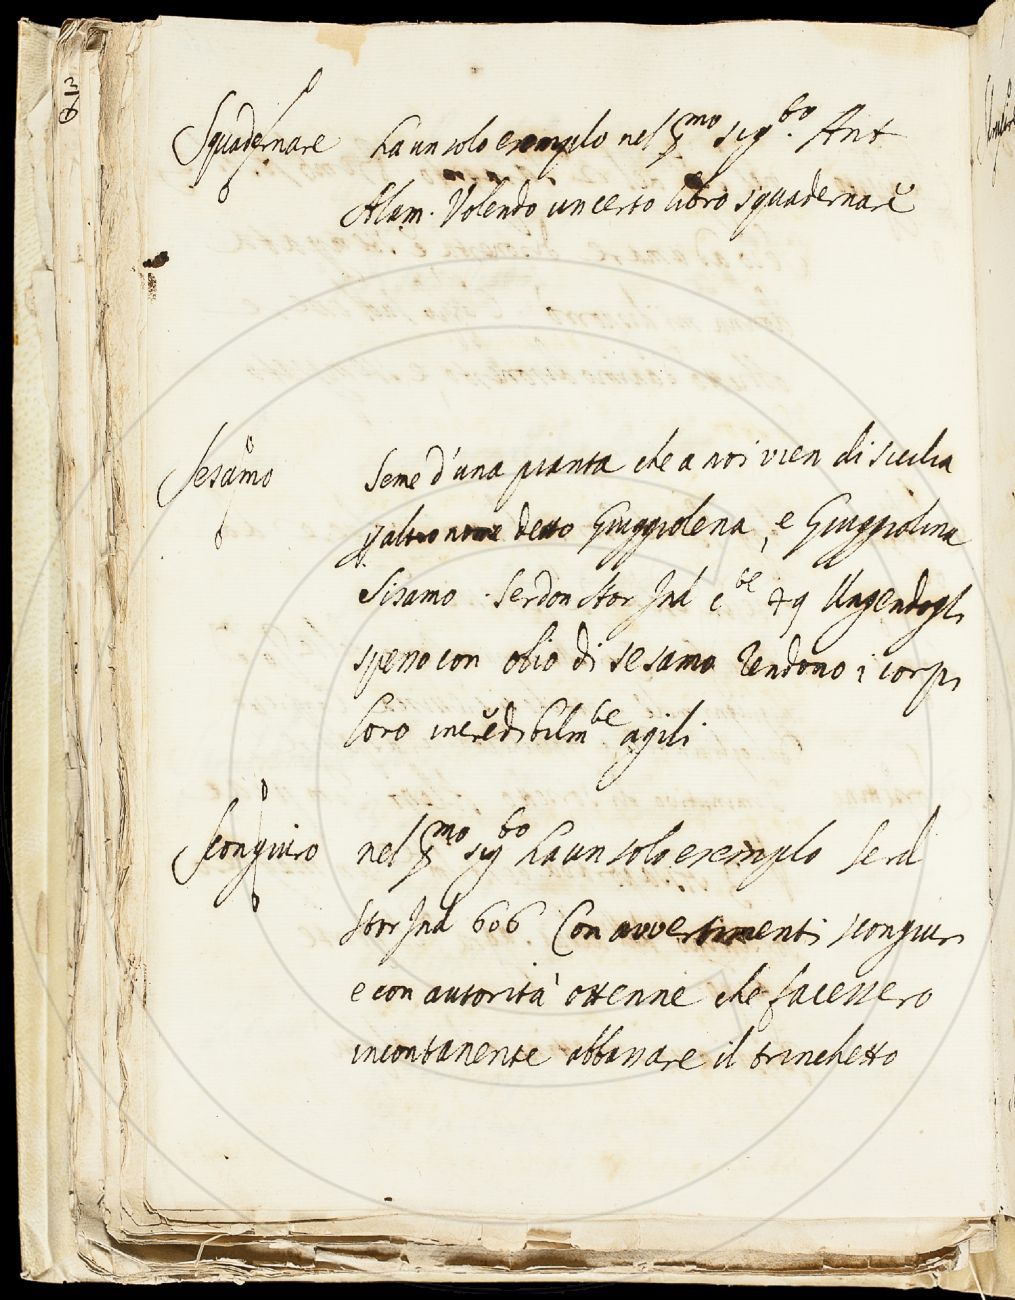 Squadernare ha un solo exemplo nel pmo sigto. Ant
Alam. Volendo un certo libro squadernare
Sesamo Seme d'una pianta che a noi vien di sicilia
p altro nome detto Giuggiolena, e Giuggiolina
Sisamo. Serdon stor Ind Ungendogli
spesso con olio di sesamo rendono i corpi
loro incredibilmte agili
Scongiuro nel pmo sigto ha un solo exemplo Serd
stor Ind 606 Con avvertimenti scongiuri
e con autorità ottenne che facessero
incontanente abbassare il trinchetto